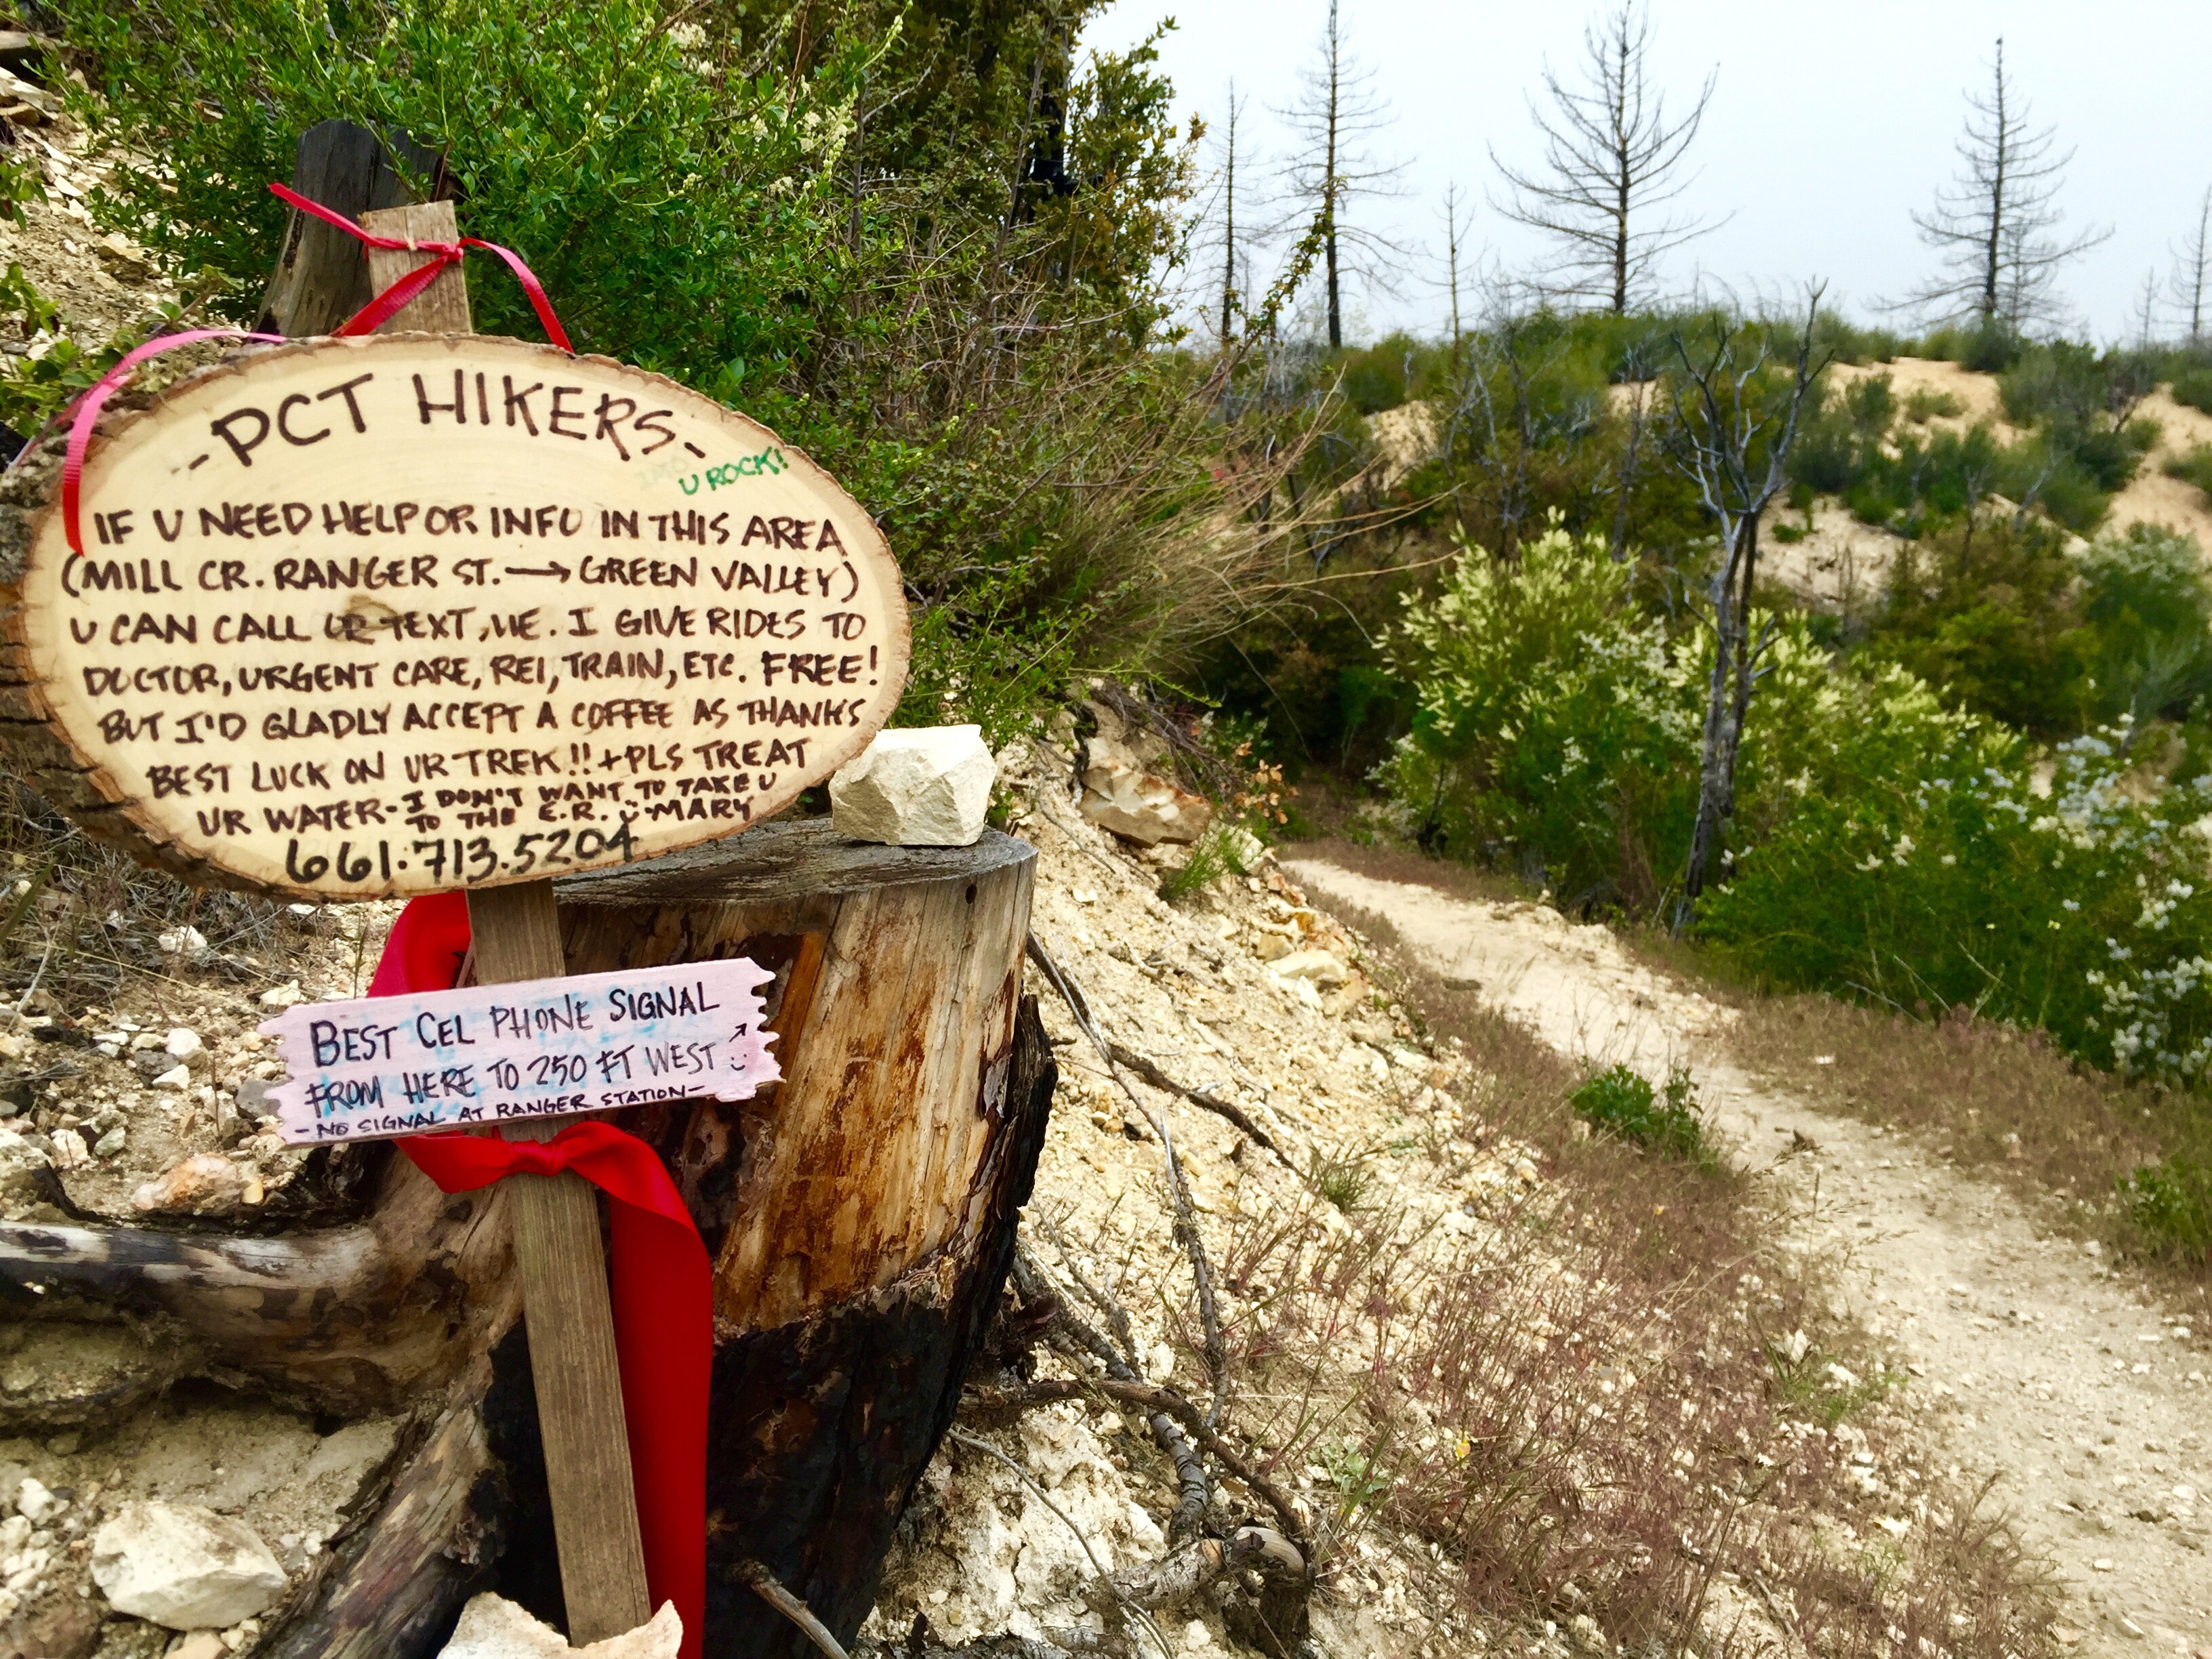 -PCT HIKERS-
U ROCK!
IF U NEED HELP OR INFO IN THIS AREA
(MILL CR. RANGER ST. → GREEN VALLEY)
U CAN CALL OR TEXT, ME. I GIVE RIDES TO
DOCTOR, URGENT CARE, REI, TRAIN, ETC. FREE!
BUT I'D GLADLY ACCEPT A COFFEE AS THANKS
BEST LUCK ON UR TREK!! + PLS TREAT
UR WATER - I DON'T WANT TO TAKE U
TO THE E.R. Ü -MARY
661.713.5204
BEST CEL PHONE SIGNAL
FROM HERE TO 250 FT WEST ↗ :)
- NO SIGNAL AT RANGER STATION -